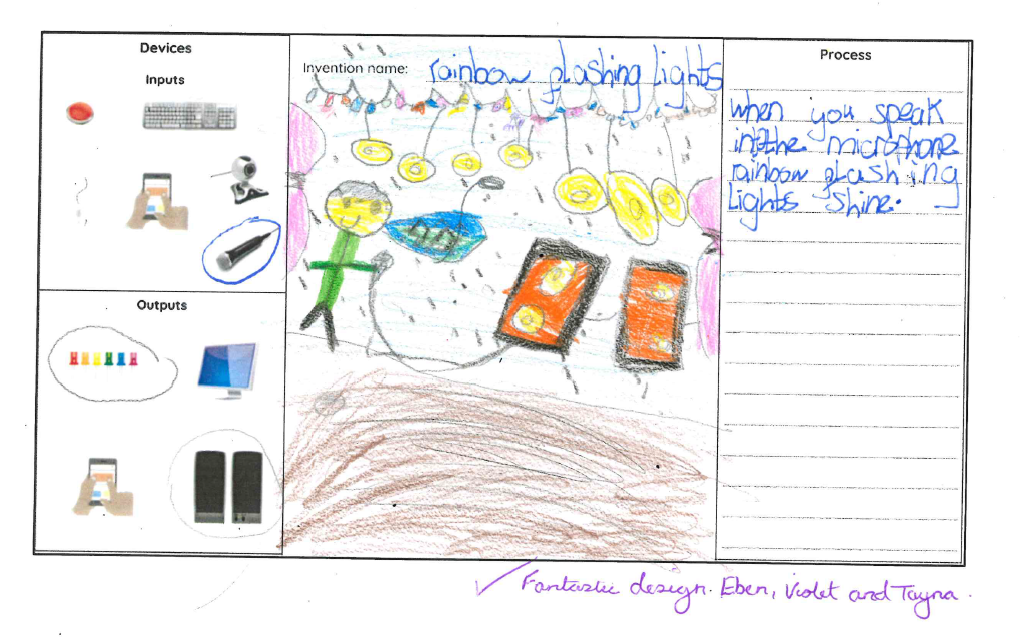 Devices
Inputs
Outputs
Invention name: rainbow flashing lights
Process
when you speak
into the microphone
rainbow flashing
Lights shine.
✓ Fantastic design. Eben, Violet and Tayna.